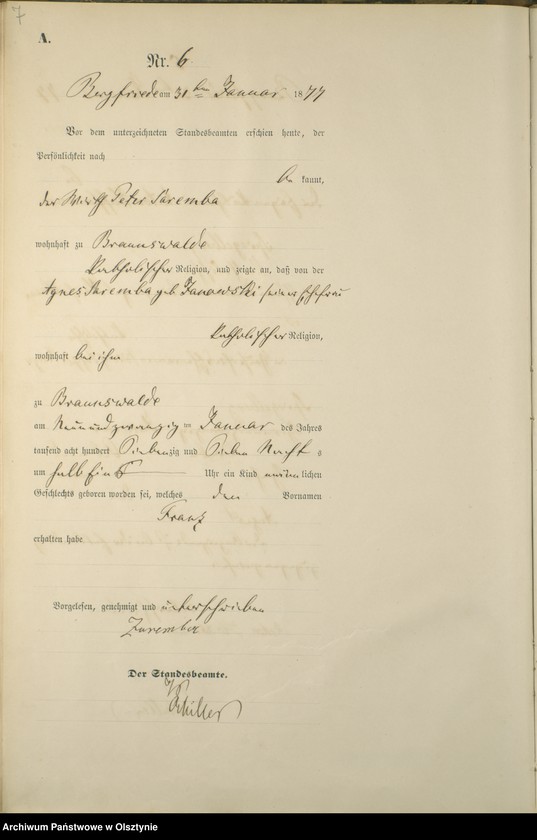 7
A.
Nr. 6
Bergfriede am 31ten Januar 1877
Vor dem unterzeichneten Standesbeamten erschien heute, der
Persönlichkeit nach
be kannt,
der Wirth Peter Saremba
wohnhaft zu Braunswalde
katholischer Religion, und zeigte an, daß von der
Agnes Saremba geb Janowski seiner Ehefrau
katholischer Religion,
wohnhaft bei ihm
zu Braunswalde
am Neunundzwanzig ten Januar des Jahres
tausend acht hundert Siebenzig und Sieben Nachts
um halb Eins Uhr ein Kind männlichen
Geschlechts geboren worden sei, welches den Vornamen
Franz
erhalten habe
Vorgelesen, genehmigt und unterschrieben
Zaremba
Der Standesbeamte.
Schiller
Archiwum Państwowe w Olsztynie